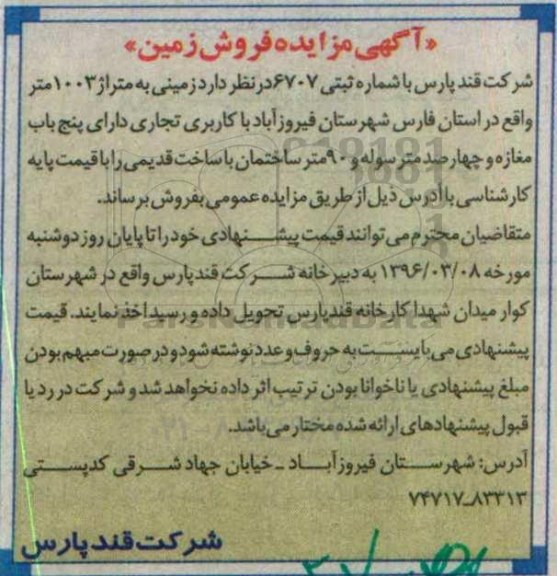 «آگهی مزایده فروش زمین»
شرکت قند پارس با شماره ثبتی ۶۷۰۷ در نظر دارد زمینی به متراژ ۱۰۰۳ متر
واقع در استان فارس شهرستان فیروزآباد با کاربری تجاری دارای پنج باب
مغازه و چهارصد متر سوله و ۹۰ متر ساختمان با ساخت قدیمی را با قیمت پایه
کارشناسی با آدرس ذیل از طریق مزایده عمومی بفروش برساند.
متقاضیان محترم می توانند قیمت پیشنهادی خود را تا پایان روز دوشنبه
مورخه ۱۳۹۶/۰۳/۰۸ به دبیرخانه شرکت قند پارس واقع در شهرستان
کوار میدان شهدا کارخانه قند پارس تحویل داده و رسید اخذ نمایند. قیمت
پیشنهادی می بایست به حروف و عدد نوشته شود و در صورت مبهم بودن
مبلغ پیشنهادی یا ناخوانا بودن ترتیب اثر داده نخواهد شد و شرکت در رد یا
قبول پیشنهادهای ارائه شده مختار می باشد.
آدرس: شهرستان فیروزآباد - خیابان جهاد شرقی کدپستی
۷۴۷۱۷-۸۳۳۱۳
شرکت قند پارس